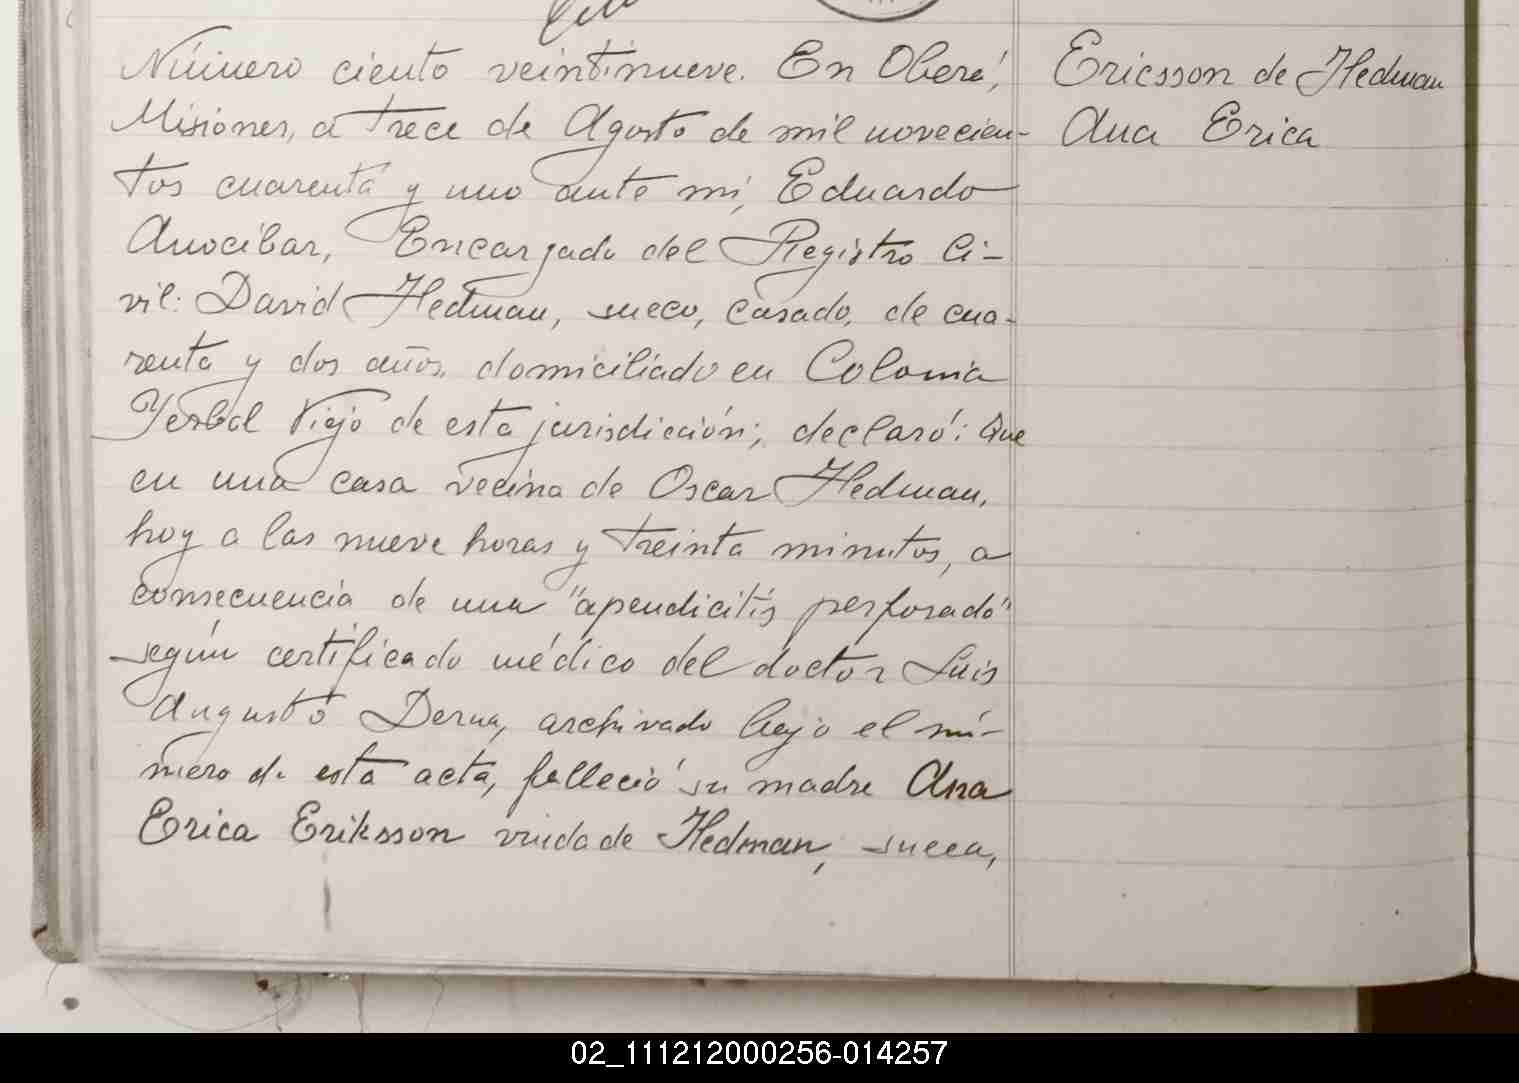 Número ciento veintinueve. En Oberá,
Misiones, a trece de Agosto de mil novecien-
tos cuarenta y uno ante mi, Eduardo
Anocibar, Encargado del Registro Ci-
vil: David Hedman, sueco, casado, de cua-
renta y dos años, domiciliado en Colonia
Yerbal Viejo de esta jurisdicción; declaró: Que
en una casa vecina de Oscar Hedman,
hoy a las nueve horas y treinta minutos, a
consecuencia de una "apendicitis perforado"
según certificado médico del doctor Luis
Augusto Derna, archivado bajo el nú-
mero de esta acta, falleció su madre Ana
Erica Eriksson viuda de Hedman, sueca,
Ericsson de Hedman
Ana Erica
02_111212000256-014257